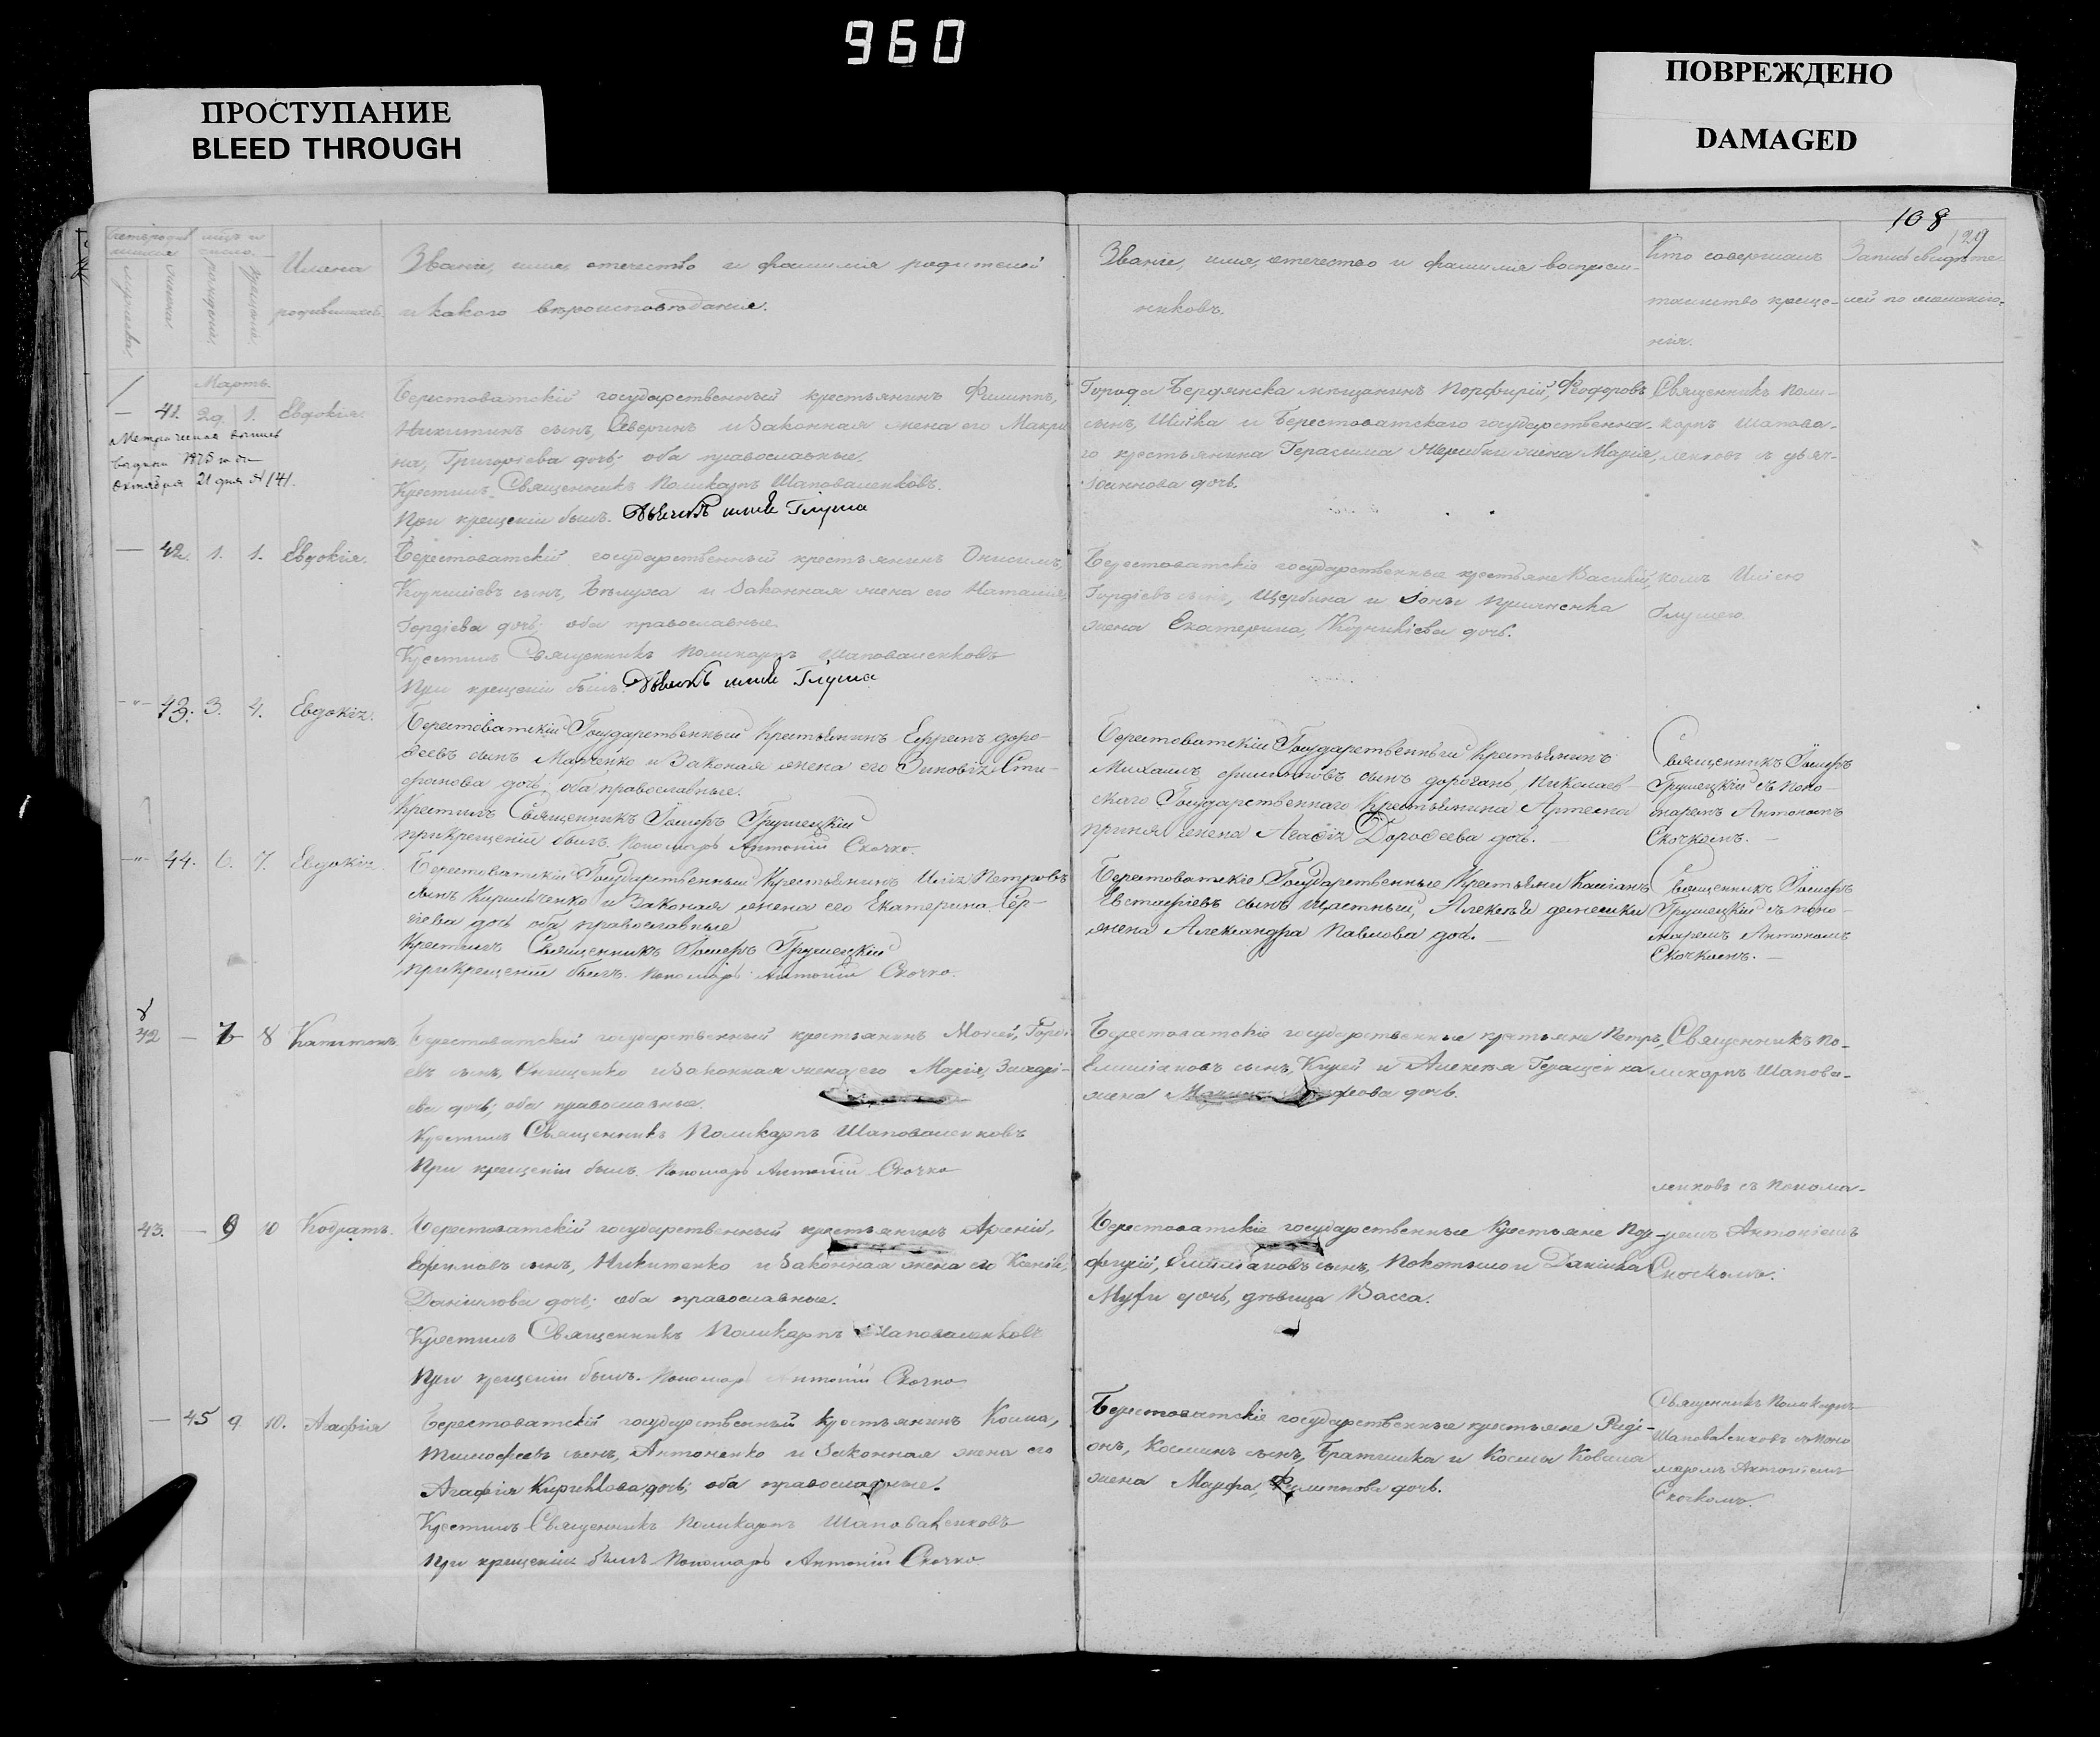 960
ПРОСТУПАНИЕ
BLEED THROUGH
ПОВРЕЖДЕНО
DAMAGED
108
129
Имена
Званіе, имя, отечество и фамилія родителей
и какого вѣроисповѣданія.
Званіе, имя, отечество и фамилія воспріем-
никовъ.
Кто совершалъ
таинство креще-
нія.
Мартъ.
41. 29. 1. Евдокія.
Берестоватскій государственный крестьянинъ Филиппъ,
Никитинъ сынъ, Северинъ и законная жена его Макри
на, Григоріева дочь; оба православные.
Крестилъ Священникъ Поликарпъ Шаповаленковъ.
При крещеніи былъ. Дьячекъ Глуша
21 дня № 141.
Города Бердянска мѣщанинъ Порфирій, Феодоровъ
сынъ, Шитка и Берестоватскаго государственна-
го крестьянина Герасима жена Марія,
Іоаннова дочь.
Священникъ Поли-
карпъ Шапова-
ленковъ съ дьяч-
42. 1. 1. Евдокія.
Берестоватскій государственный крестьянинъ Онисимъ,
Корниліевъ сынъ, Бѣлуха и законная жена его Наталія,
Гордіева дочь; оба православные.
Крестилъ Священникъ Поликарпъ Шаповаленковъ
При крещеніи былъ. Дьячекъ Глуша
Берестоватскіе государственные крестьяне Василій,
Гордіевъ сынъ, Щербина и Іоны
жена Екатерина, Корниліева дочь.
комъ Иліею
Глушею.
43. 3. 4. Евдокія.
Берестоватскій Государственный Крестьянинъ Ефремъ Доро-
феевъ сынъ Марченко и Законая жена его Зиновія Сте-
фанова дочь; оба православные.
Крестилъ Священникъ Іосифъ Грушецкій
при крещеніи былъ. Пономарь Антоній Скочко.
Берестоватскій Государственный Крестьянинъ
Михаилъ Филиповъ сынъ Дорогань, Николаев-
скаго Государственнаго Крестьянина Артема
жена Агафія Дорофеева дочь.
Священникъ Іосифъ
Грушецкій съ поно-
маремъ Антоніемъ
Скочкомъ.
44. 6. 7. Евдокія.
Берестоватскій Государственный Крестьянинъ Илія Петровъ
сынъ Кириченко и Законая жена его Екатерина Сер-
гіева дочь оба православные
Крестилъ Священникъ Іосифъ Грушецкій
при крещеніи былъ. Пономарь Антоній Скочко.
Берестоватскіе Государственные Крестьяне
Евстафіевъ сынъ Щастный, Алексѣя
жена Александра Павлова дочь.
Священникъ Іосифъ
Грушецкій съ поно-
маремъ Антоніемъ
Скочкомъ.
42 7 8 Капитонъ.
Берестоватскій государственный крестьянинъ Моисей, Горді-
евъ сынъ, Онищенко и законная жена его Марія, Захарі-
ева дочь; оба православные.
Крестилъ Священникъ Поликарпъ Шаповаленковъ
При крещеніи былъ. Пономарь Антоній Скочко
Берестоватскіе государственные крестьяне Петръ,
Емиліановъ сынъ, и Алексѣя Геращенка
жена дочь.
Священникъ По-
ликарпъ Шапова-
ленковъ съ понома-
43. 9 10 Кодратъ.
Берестоватскій государственный крестьянинъ Арсеній,
Ефимовъ сынъ, Никитенко и законная жена его Ксенія,
Даніилова дочь; оба православные.
Крестилъ Священникъ Поликарпъ Шаповаленковъ
При крещеніи былъ. Пономарь Антоній Скочко
Берестоватскіе государственные крестьяне Пор-
фирій, Емиліановъ сынъ, Покотило и Даніила
дочь, дѣвица Васса.
ремъ Антоніемъ
Скочкомъ.
45 9 10. Агафія
Берестоватскій государственный крестьянинъ Косма,
Тимофеевъ сынъ, Антоненко и законная жена его
Агафія Кириллова дочь; оба православные.
Крестилъ Священникъ Поликарпъ Шаповаленковъ
При крещеніи былъ Пономарь Антоній Скочко
Берестоватскіе государственные крестьяне Роді-
онъ, Косминъ сынъ, Братишка и Космы Коваля
жена Марфа, Филиппова дочь.
Священникъ Поликарпъ
Шаповаленковъ съ поно
маремъ Антоніемъ
Скочкомъ.